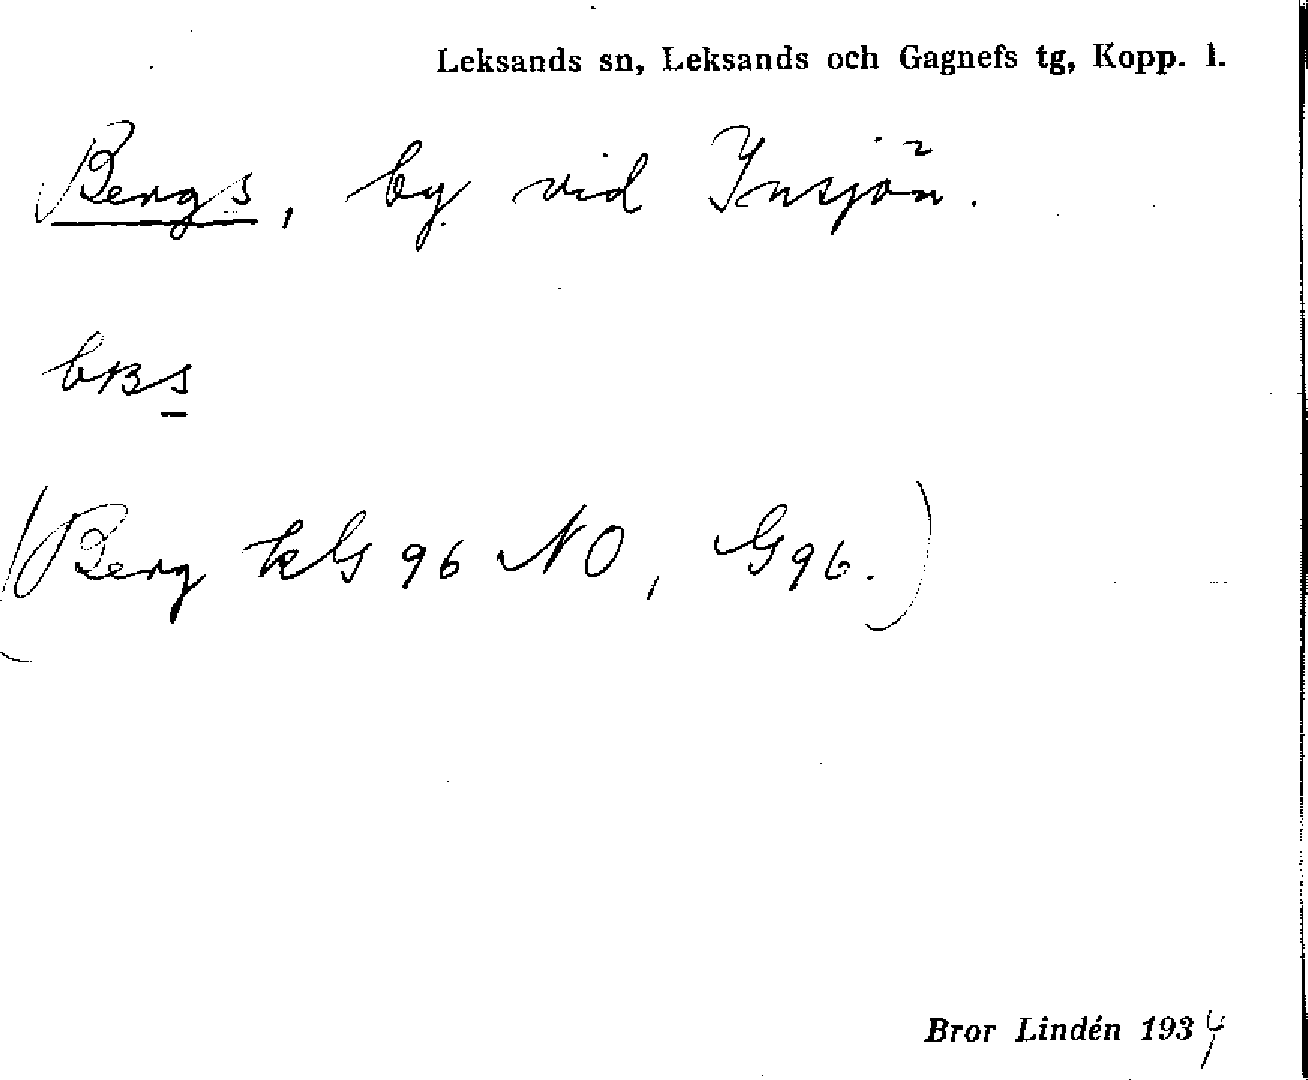 Leksands sn, Leksands och Gagnefs tg, Kopp. l.
Bergs, by vid Insjön.
(Berg kG 96 NO, G96.)
Bror Lindén 1934